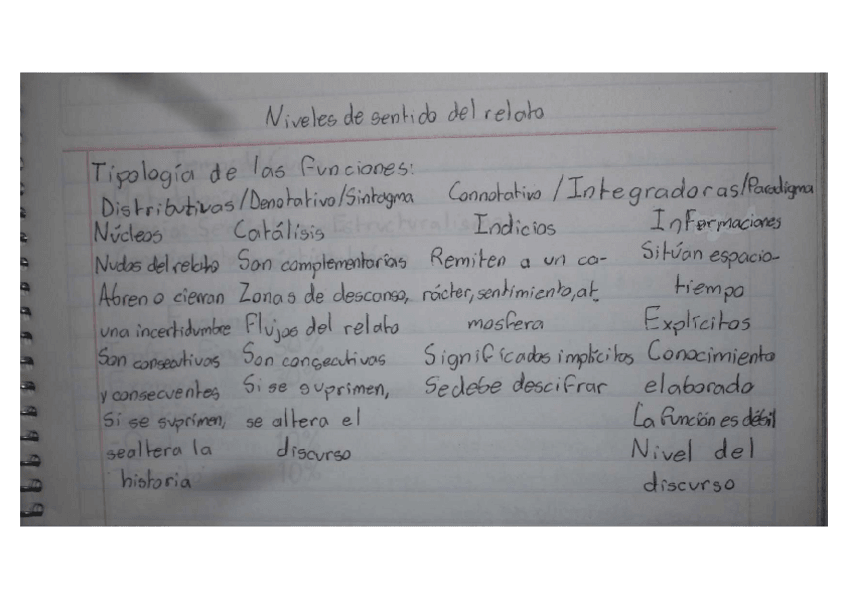 Niveles de sentido del relato
Tipología de las funciones:
Distributivas/Denotativo/Sintagma Connotativo/Integradoras/Paradigma
Núcleos Catálisis Indicios Informaciones
Nudos del relato Son complementarias Remiten a un ca- Sitúan espacio-
Abren o cierran Zonas de descanso, rácter, sentimiento, at tiempo
una incertidumbre Flujos del relato mosfera Explícitos
Son consecutivos Son consecutivas Significados implícitos Conocimiento
y consecuentes Si se suprimen, Se debe descifrar elaborado
Si se suprimen, se altera el La función es débil
se altera la discurso Nivel del
historia discurso